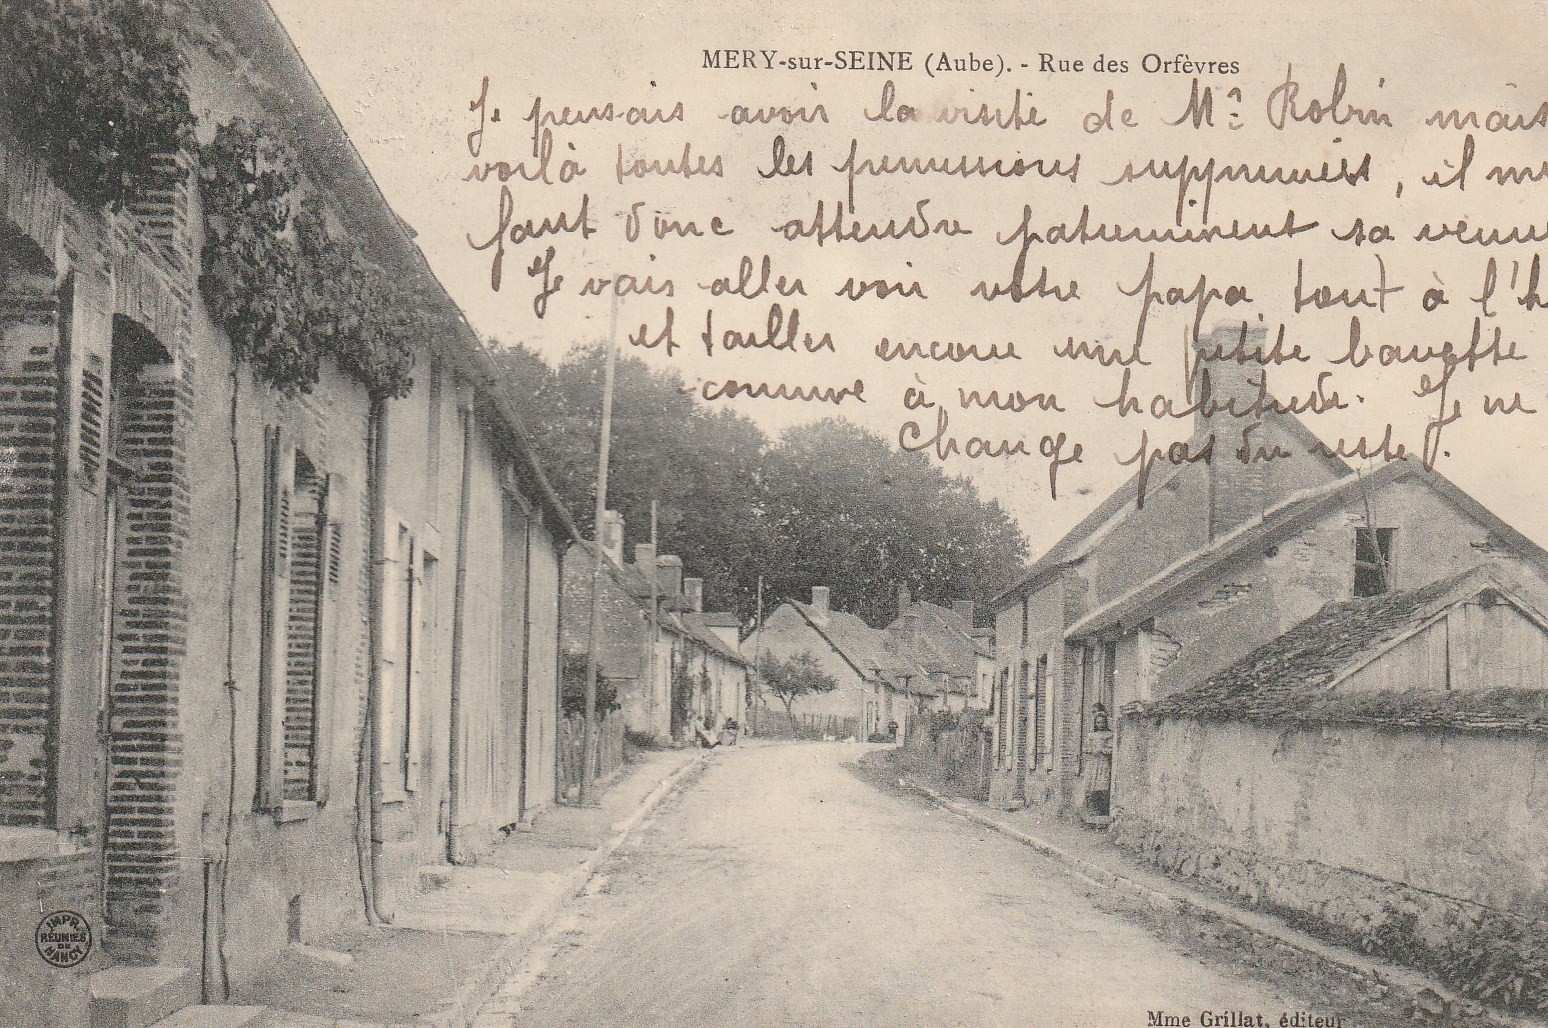 MERY-sur-SEINE (Aube). - Rue des Orfèvres
Je pensais avoir la visite de Mr Robin mais
voilà toutes les permissions supprimées, il me
faut donc attendre patiemment sa venue
Je vais aller voir votre papa tout à l'h
et tailler encore une petite bavette
comme à mon habitude. Je ne
change pas du reste.
IMPR.
REUNIES
DE
NANCY
Mme Grillat, éditeur